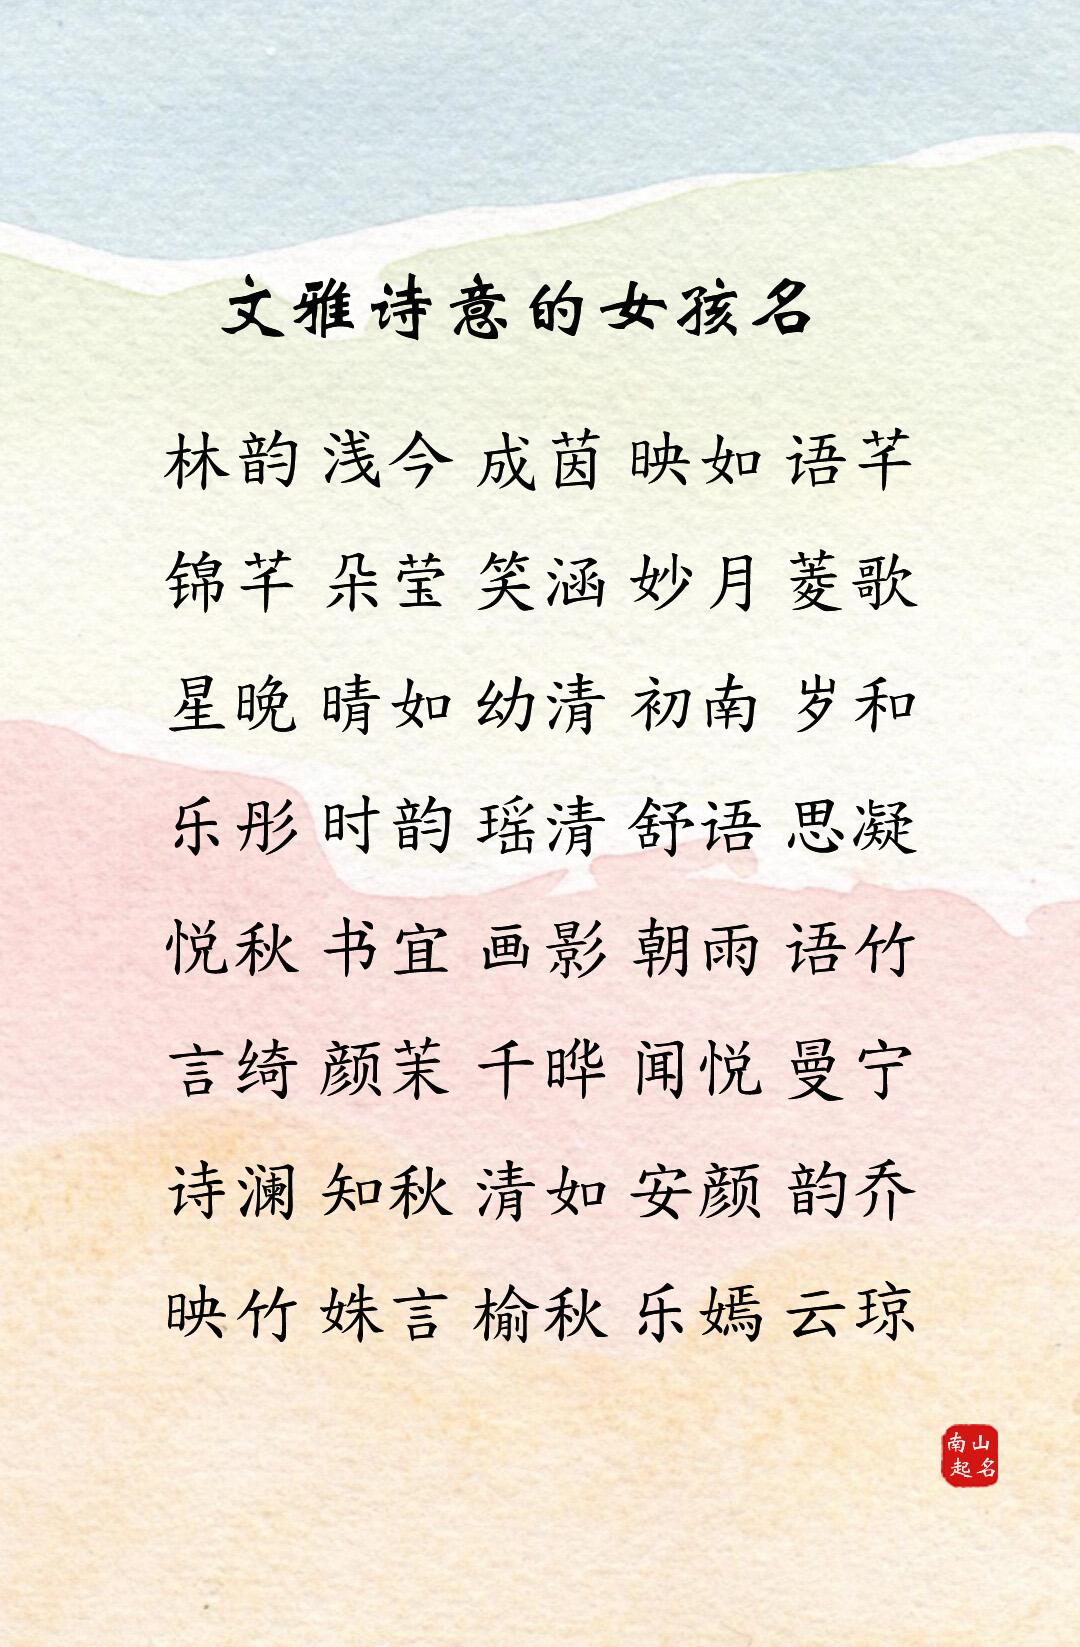 文雅诗意的女孩名
林韵 浅今 成茵 映如 语芊
锦芊 朵莹 笑涵 妙月 菱歌
星晚 晴如 幼清 初南 岁和
乐彤 时韵 瑶清 舒语 思凝
悦秋 书宜 画影 朝雨 语竹
言绮 颜茉 千晔 闻悦 曼宁
诗澜 知秋 清如 安颜 韵乔
映竹 姝言 榆秋 乐嫣 云琼
南山
起名